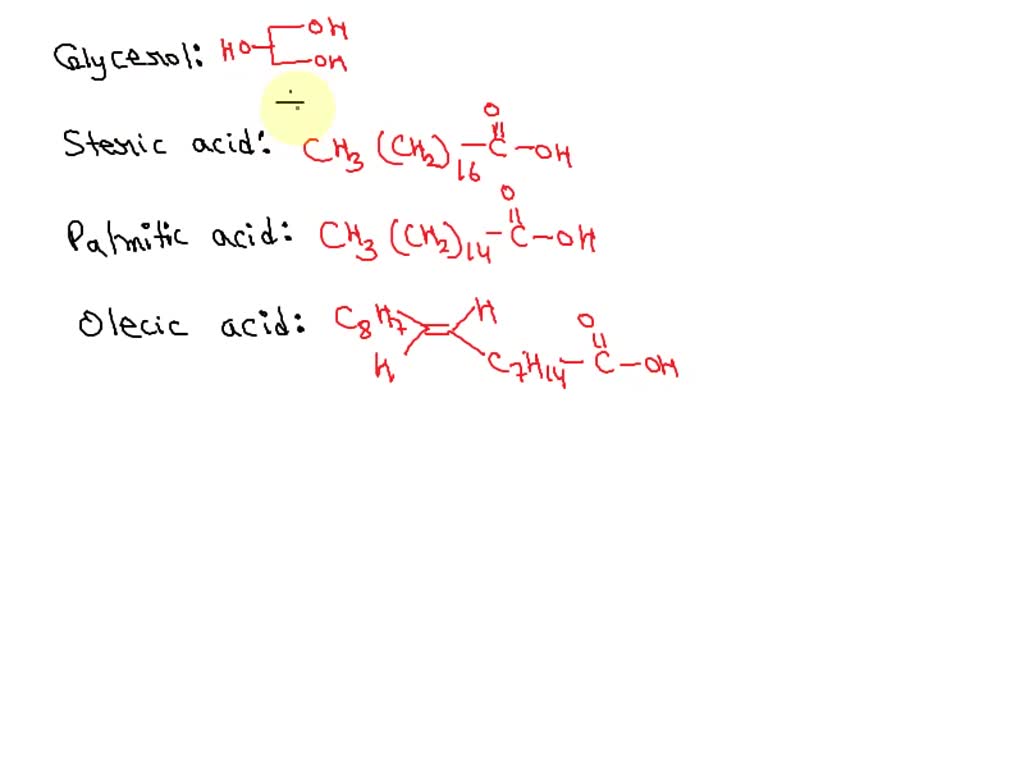 Glycerol: HO OH OH
÷
Steric acid: CH3 (CH2)16 – C – OH O
Palmitic acid: CH3 (CH2)14 – C – OH O
Olecic acid: C8H7 H H C7H14 – C – OH O